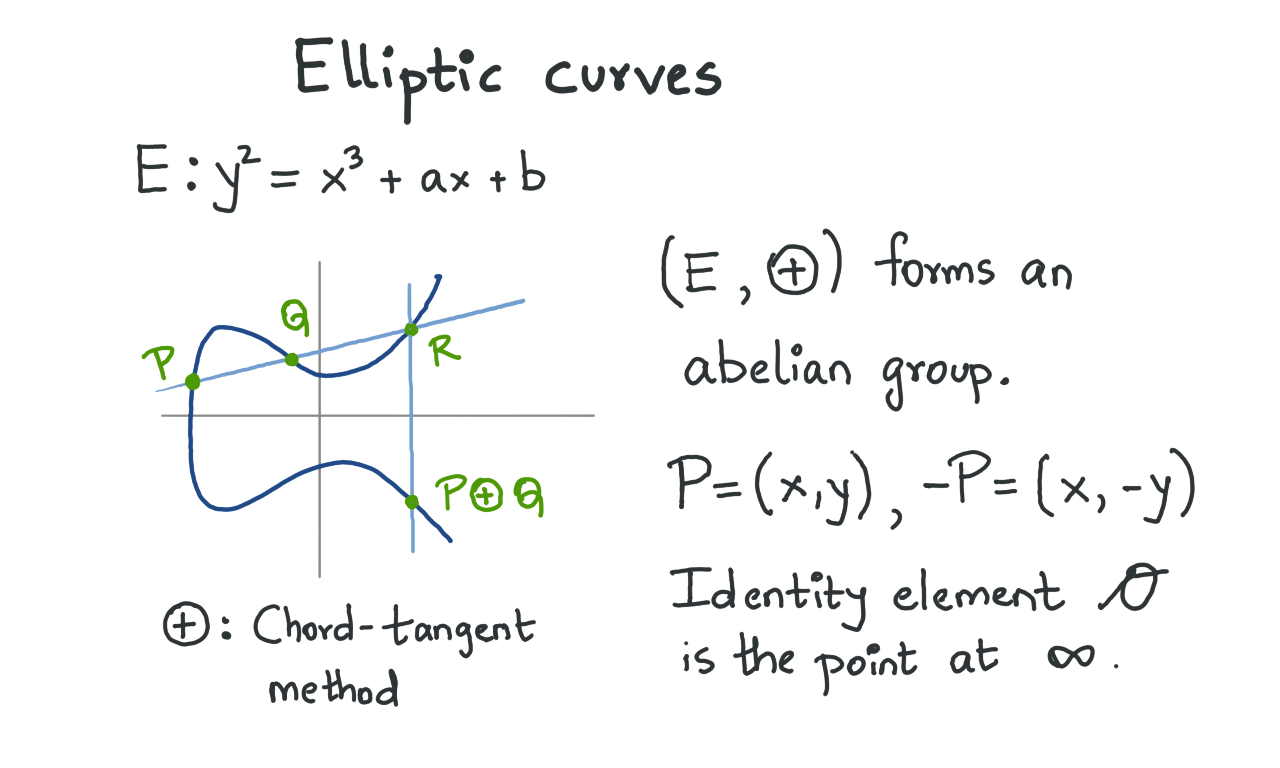 Elliptic curves
E : y² = x³ + ax + b
P
Q
R
P⊕Q
⊕ : Chord-tangent
method
(E, ⊕) forms an
abelian group.
P = (x, y), -P = (x, -y)
Identity element 𝒪
is the point at ∞.